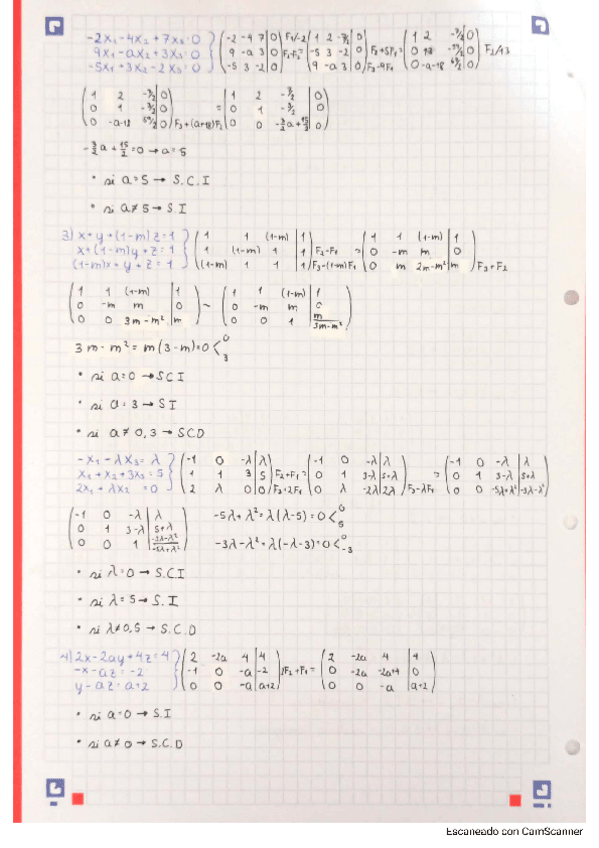 -2x₁-4x₂+7x₃=0
9x₁-ax₂+3x₃=0
-5x₁+3x₂-2x₃=0
(-2 -4 7 | 0) F₁/-2 (1 2 -7/2 | 0)
(9 -a 3 | 0)
(-5 3 -2 | 0)
(-5 3 -2 | 0) F₂+5F₁ =
(9 -a 3 | 0) F₃-9F₁
(1 2 -7/2 | 0)
(1 2 -7/2 | 0)
(0 1 -3/2 | 0)
(0 -a-18 69/2 | 0) F₃+(a+18)F₂
=
(1 2 -7/2 | 0)
(0 1 -3/2 | 0)
(0 0 -3/2a+15/2 | 0)
-3/2 a + 15/2 = 0 → a=5
• si a=5 → S.C.I
• si a≠5 → S.I
3) x+y+(1-m)z=1
x+(1-m)y+z=1
(1-m)x+y+z=1
(1 1 (1-m) | 1)
(1 (1-m) 1 | 1) F₂-F₁
((1-m) 1 1 | 1) F₃-(1-m)F₁
=
(1 1 (1-m) | 1)
(0 -m m | 0)
(0 m 2m-m² | m) F₃+F₂
(1 1 (1-m) | 1)
(0 -m m | 0)
(0 0 3m-m² | m)
~
(1 1 (1-m) | 1)
(0 -m m | 0)
(0 0 1 | m/3m-m²)
3m-m²=m(3-m)=0 < 0 3
• si a=0 → SCI
• si a=3 → SI
• si a≠0,3 → SCD
-x₁-λx₃=λ
x₁+x₂+3x₃=5
2x₁+λx₂ =0
(-1 0 -λ | λ)
(1 1 3 | 5) F₂+F₁
(2 λ 0 | 0) F₃+2F₁
=
(-1 0 -λ | λ)
(0 1 3-λ | 5+λ)
(0 λ -2λ | 2λ) F₃-λF₁
=
(-1 0 -λ | λ)
(0 1 3-λ | 5+λ)
(0 0 -5λ+λ² | -3λ-λ²)
(-1 0 -λ | λ)
(0 1 3-λ | 5+λ)
(0 0 1 | -3λ-λ²/-5λ+λ²)
-5λ+λ²=λ(λ-5)=0 < 0 5
-3λ-λ²=λ(-λ-3)=0 < 0 -3
• si λ=0 → S.C.I
• si λ=5 → S.I
• si λ≠0,5 → S.C.D
4) 2x-2ay+4z=4
-x-az=-2
y-az=a+2
(2 -2a 4 | 4)
(-1 0 -a | -2) 2F₂+F₁ =
(0 0 -a | a+2)
(2 -2a 4 | 4)
(0 -2a -2a+4 | 0)
(0 0 -a | a+2)
• si a=0 → S.I
• si a≠0 → S.C.D
Escaneado con CamScanner